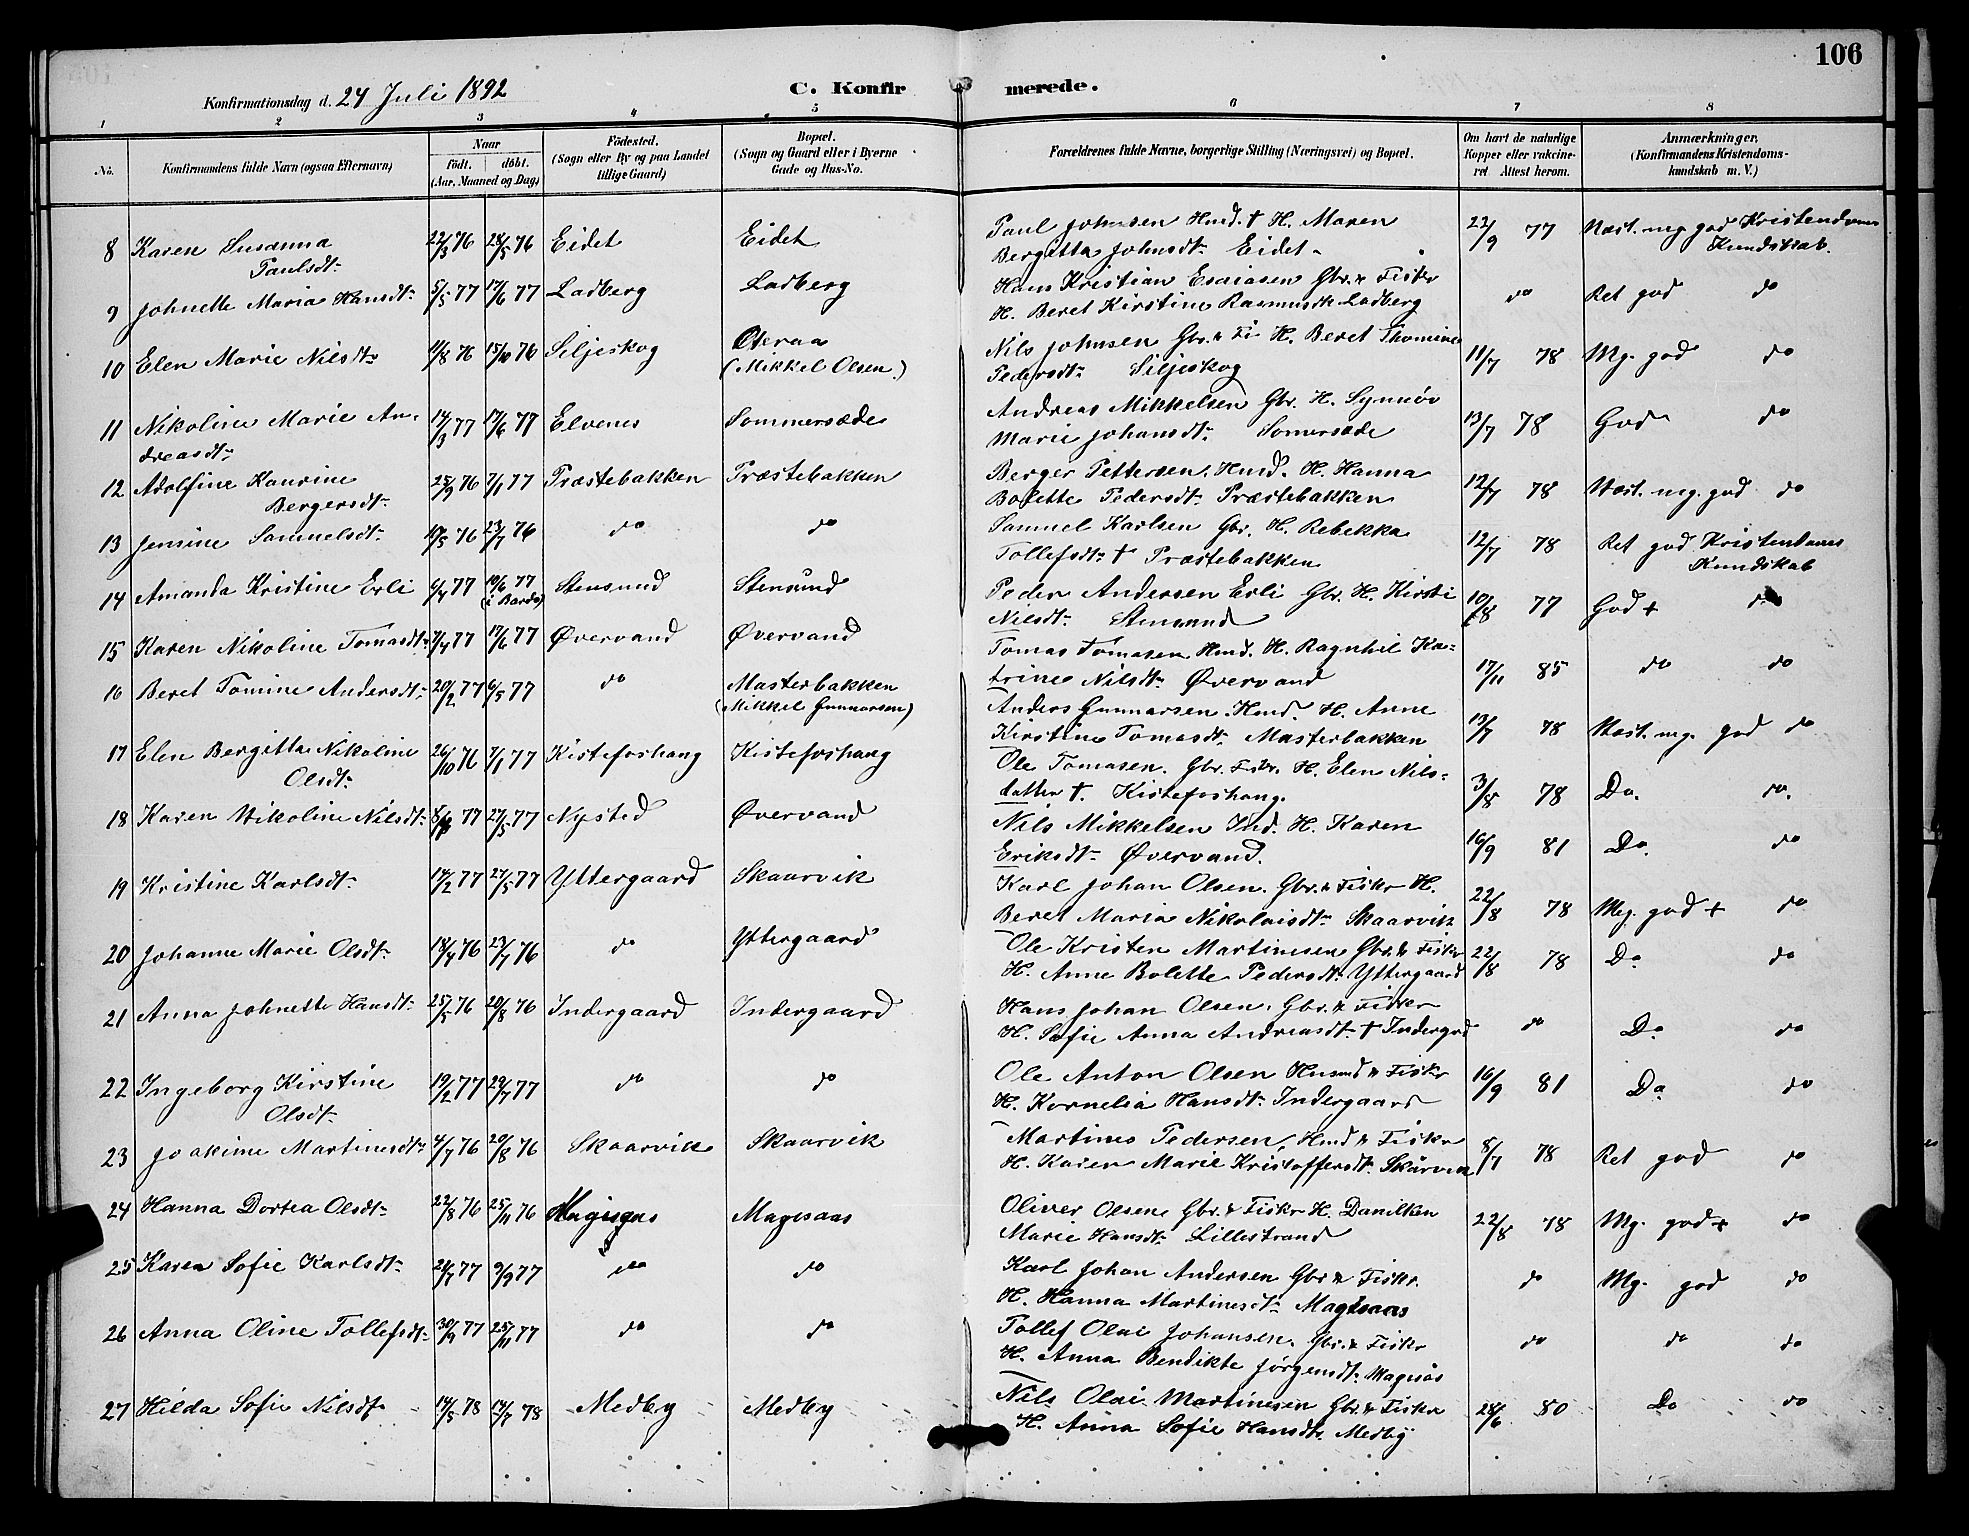 106
Konfirmationsdag d. 24 Juli 1892 C. Konfirmerede.
1 2 3 4 5 6 7 8
No. Konfirmandens fulde Navn (ogsaa Efternavn) Naar født. døbt. (Aar, Maaned og Dag) Fødested. (Sogn eller By og paa Landet tillige Gaard) Bopæl. (Sogn og Gaard eller i Byerne Gade og Hus-No. Forældrenes fulde Navne, borgerlige Stilling (Næringsvei) og Bopæl. Om havt de naturlige Kopper eller vaccineret Attest herom. Anmærkninger, (Konfirmandens Kristendomskundskab m. V.)
8 Karen Susanna 22/3 76 28/5 76 Eidet Eidet Paul Johnsen Hmd. † H. Maren 22/9 77 Næst. mg. god Kristendoms
Paulsdt. Bergitta Johnsdt. Eidet. Kundskab.
9 Johnette Maria Hansdt. 5/5 77 17/6 77 Ladberg Ladberg Hans Kristian Esaiasen Gbr. & Fisker do Ret god do
H. Beret Kirstine Rasmusdt. Ladberg
10 Elen Marie Nilsdt. 11/8 76 15/10 76 Siljeskog Øteraa Nils Johnsen Gbr. & Fi H. Beret Thomine 11/7 78 Mg. god do
(Mikkel Olsen.) Pedersdt. Siljeskog
11 Nikoline Marie An- 14/3 77 17/6 77 Elvenes Sommersæde Andreas Mikkelsen Gbr. H. Synnøv 13/7 78 God do
dreasdt. Marie Johansdt. Somersæde
12 Adolfine Kaurine 25/9 76 7/1 77 Præstebakken Præstebakken Berger Pettersen. Hmd. H. Hanna 12/7 78 Næst. mg. god do
Bergersdt. Bolette Pedersdt. Præstebakken
13 Jensine Samuelsdt. 10/5 76 23/7 76 do do Samuel Karlsen Gbr. H. Rebekka 12/7 78 Ret god Kristendoms
Tollefsdt. † Præstebakken Kundskab
14 Amanda Kristine Erli 6/4 77 10/6 77 Stensund Stensund Peder Andersen Erli Gbr. H. Kirsti 10/8 77 God + do
(i Bardo) Nilsdt. Stensund
15 Karen Nikoline Tomasdt. 7/4 77 17/6 77 Øvervand Øvervand Tomas Tomasen Hmd. H. Ragnhil Ka- 17/11 85 do do
trine Nilsdt. Øvervand
16 Beret Tomine Andersdt. 20/2 77 6/5 77 do Masterbakken Anders Gunnarsen. Hmd. H. Anne 13/7 78 Næst. mg. god do
(Mikkel Gunnarsen) Kirstine Tomasdt. Masterbakken
17 Elen Bergitta Nikoline 26/10 76 7/1 77 Kisteforshang Kisteforshang Ole Tomasen. Gbr. Fiskr. H. Elen Nils- 3/8 78 Do. do.
Olsdt. datter †. Kisteforshang.
18 Karen Nikoline Nilsdt. 77 27/5 77 Nysted Øvervand Nils Mikkelsen Ind. H. Karen 16/9 81 Do. do
Eriksdt. Øvervand.
19 Kristine Karlsdt. 14/2 77 27/5 77 Yttergaard Skaarvik Karl Johan Olsen. Gbr. & Fiskr H. 22/8 78 Mg. god + do
Beret Maria Nikolaisdt. Skaarvik
20 Johanne Marie Olsdt. 18/4 76 23/7 76 do Yttergaard Ole Kristen Martinesen Gbr. & Fiskr 22/8 78 Do do
H. Anne Bolette Pedersdt. Yttergaard
21 Anna Johnette Hansdt. 25/5 76 20/8 76 Indergaard Indergaard Hans Johan Olsen. Gbr. & Fisker do Do do
H. Sofie Anna Andreasdt. † Indergrd
22 Ingeborg Kirstine 19/2 77 29/7 77 do do Ole Anton Olsen Husmd & Fiskr 16/9 81 Do do
Olsdt. H. Kornelia Hansdt. Indergaard
23 Joakime Martinesdt. 4/7 76 20/8 76 Skaarvik Skaarvik Martines Pedersen, Hmd & Fiskr 8/7 78 Ret god do
H. Karen Marie Kristoffersdt. Skårvik
24 Hanna Dortea Olsdt. 22/8 76 25/11 76 Magesaas Magesaas Oliver Olsen, Gbr. & Fiskr H. Danilken 22/8 78 Mg. god + do
Marie Hansdt. Lillestrand
25 Karen Sofie Karlsdt. 24/7 77 9/9 77 do do Karl Johan Andersen Gbr & Fiskr. do Mg. god do
H. Hanna Martinesdt. Magesaas
26 Anna Oline Tollefsdt. 30/9 77 25/11 77 do do Tollef Olai Johansen. Gbr. & Fiskr do do do
H. Anna Bendikte Jørgensdt. Magesås
27 Hilda Sofie Nilsdt. 14/5 78 14/7 78 Medby Medby Nils Olai Martinesen Gbr. & Fiskr 28/6 80 Do do
H. Anna Sofie Hansdt. Medby